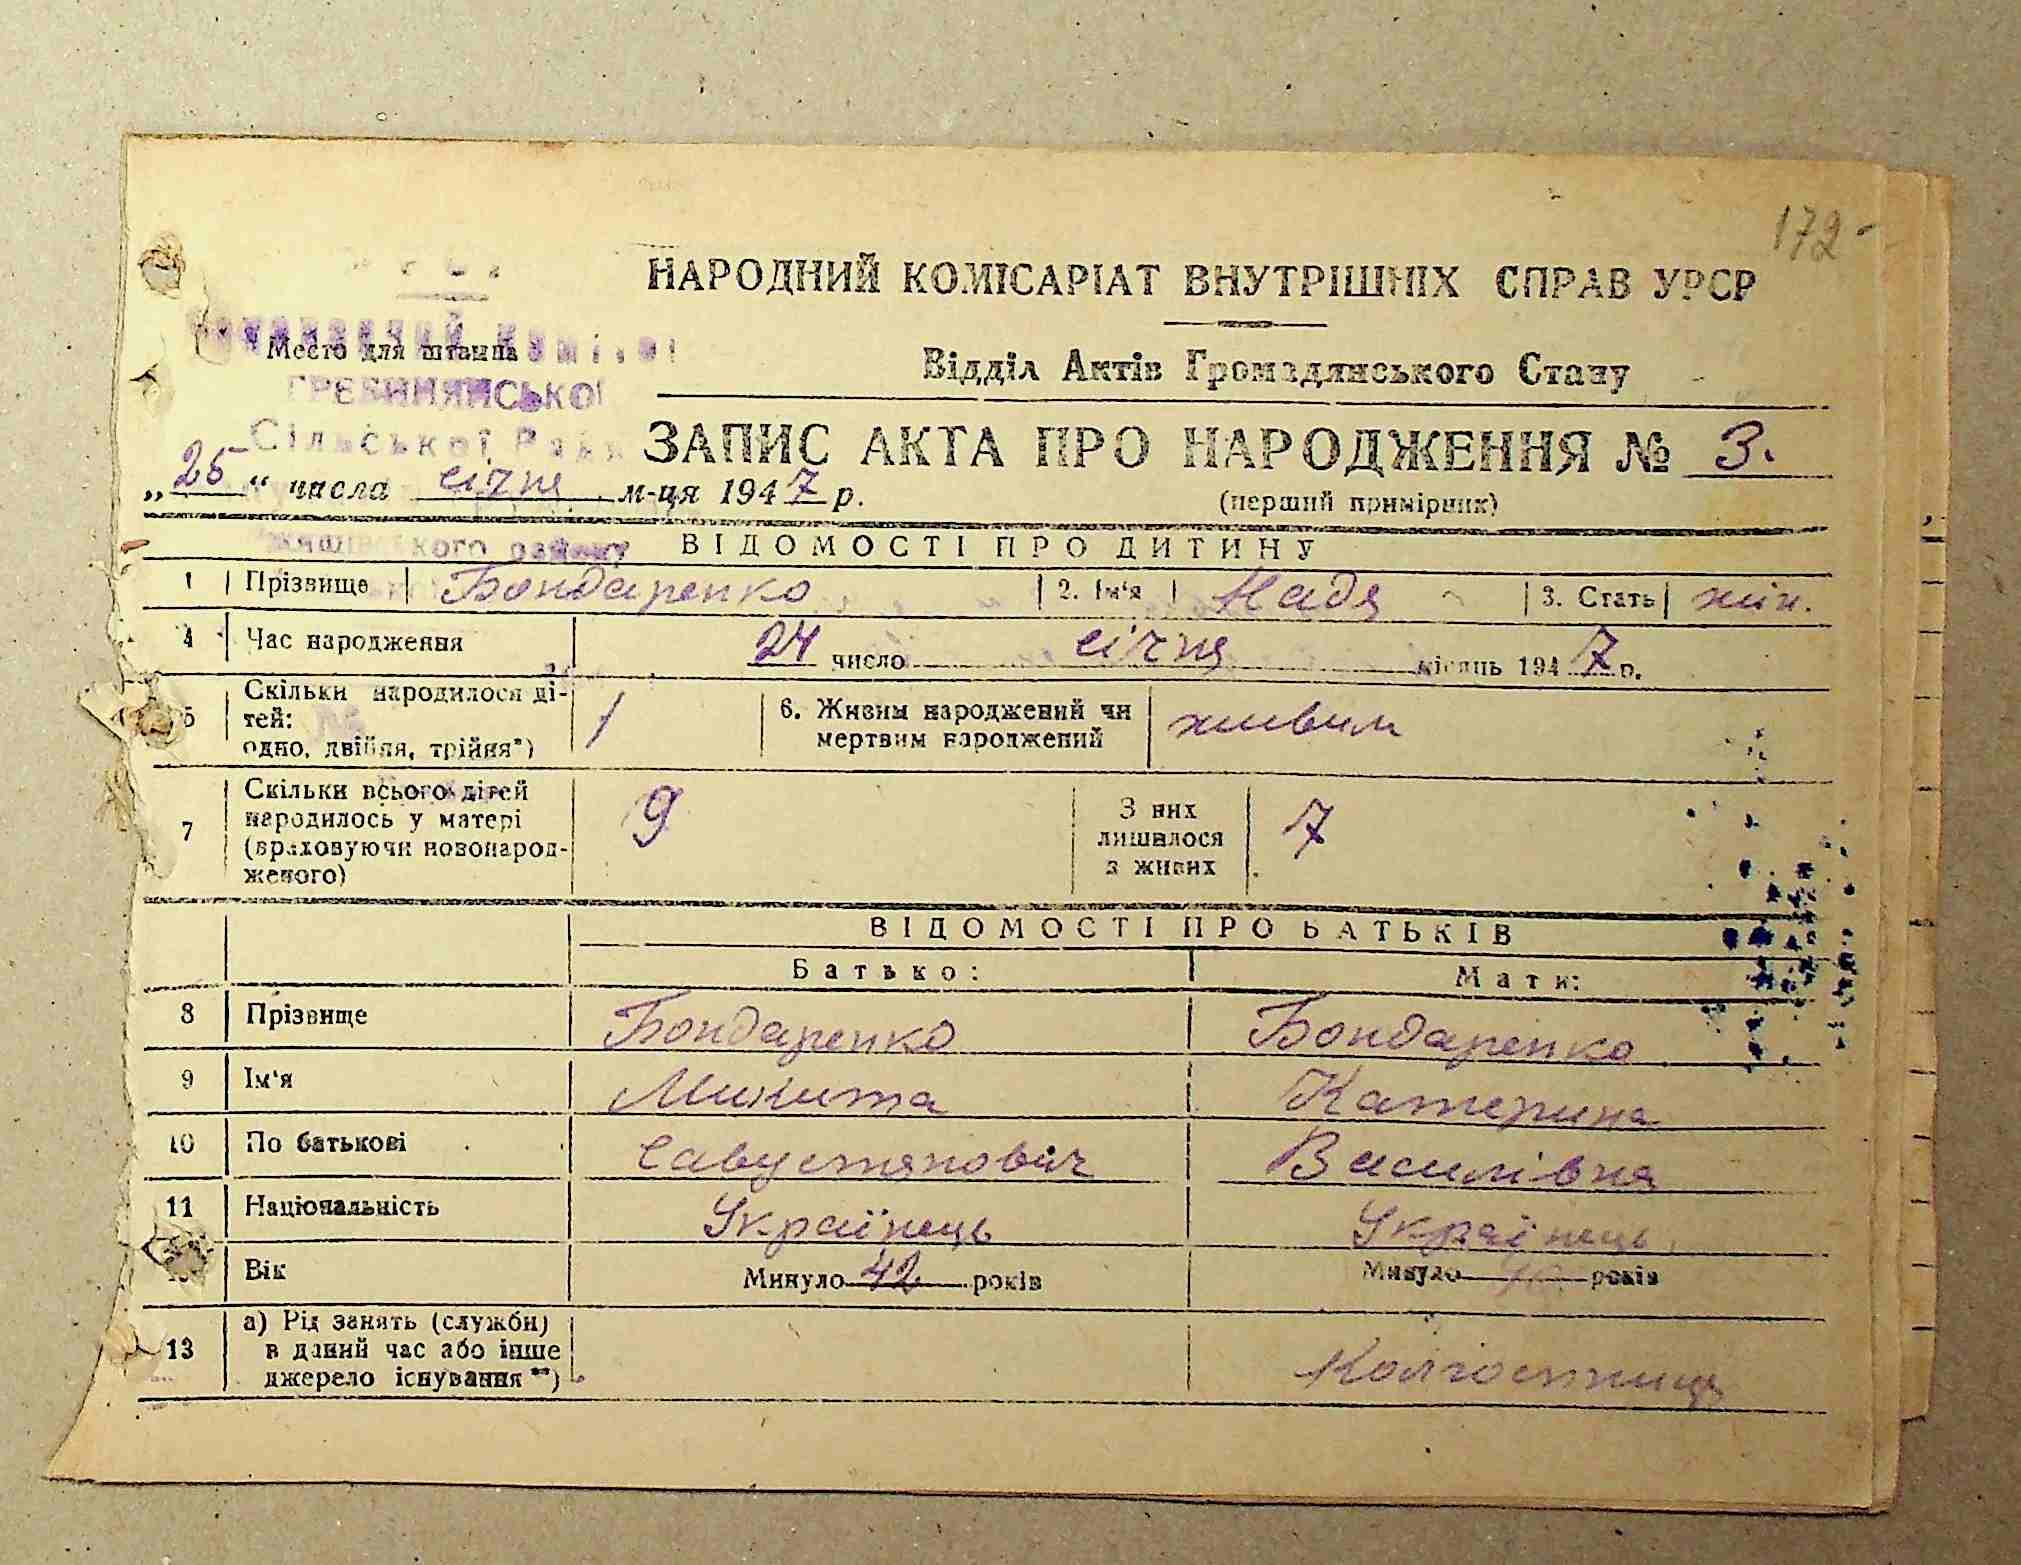 172-
НАРОДНИЙ КОМІСАРІАТ ВНУТРІШНІХ СПРАВ УРСР
Место для штампа
Відділ Актів Громадянського Стану
ГРЕБИНЯНСЬКОЇ
Сільської Ради
ЗАПИС АКТА ПРО НАРОДЖЕННЯ № 3.
„25“ числа січня м-ця 1947 р.
(перший примірник)
району
ВІДОМОСТІ ПРО ДИТИНУ
1 Прізвище Бондаренко 2. Ім'я Надя 3. Стать жін.
4 Час народження 24 число січня місяць 1947 р.
5 Скільки народилося ді-
тей:
одно, двійня, трійня*) 1 6. Живим народжений чи
мертвим народжений живим
7 Скільки всього дітей
народилось у матері
(враховуючи новонарод-
женого) 9 З них
лишилося
з живих 7
ВІДОМОСТІ ПРО БАТЬКІВ
Батько: Мати:
8 Прізвище Бондаренко Бондаренко
9 Ім'я Микита Катерина
10 По батькові Савустянович Василівна
11 Національність Українець Українець
Вік Минуло 42 років Минуло 40 років
13 а) Рід занять (служби)
в даний час або інше
джерело існування **) Колгоспниця